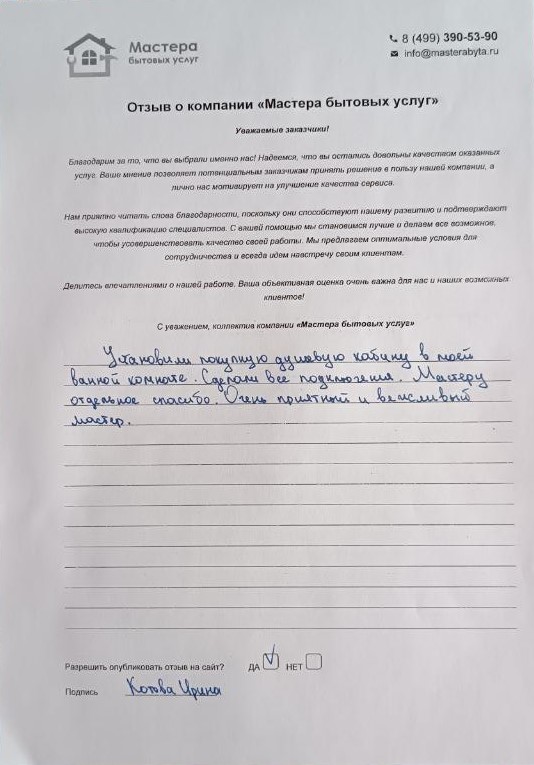 Мастера
бытовых услуг
8 (499) 390-53-90
info@masterabyta.ru
Отзыв о компании «Мастера бытовых услуг»
Уважаемые заказчики!
Благодарим за то, что вы выбрали именно нас! Надеемся, что вы остались довольны качеством оказанных
услуг. Ваше мнение позволяет потенциальным заказчикам принять решение в пользу нашей компании, а
лично нас мотивирует на улучшение качества сервиса.
Нам приятно читать слова благодарности, поскольку они способствуют нашему развитию и подтверждают
высокую квалификацию специалистов. С вашей помощью мы становимся лучше и делаем все возможное,
чтобы усовершенствовать качество своей работы. Мы предлагаем оптимальные условия для
сотрудничества и всегда идем навстречу своим клиентам.
Делитесь впечатлениями о нашей работе. Ваша объективная оценка очень важна для нас и наших возможных
клиентов!
С уважением, коллектив компании «Мастера бытовых услуг»
Установили покупную душевую кабину в моей
ванной комнате. Сделали все подключения. Мастеру
отдельное спасибо. Очень приятный и вежливый
мастер.
Разрешить опубликовать отзыв на сайт? ДА НЕТ
Подпись Котова Ирина